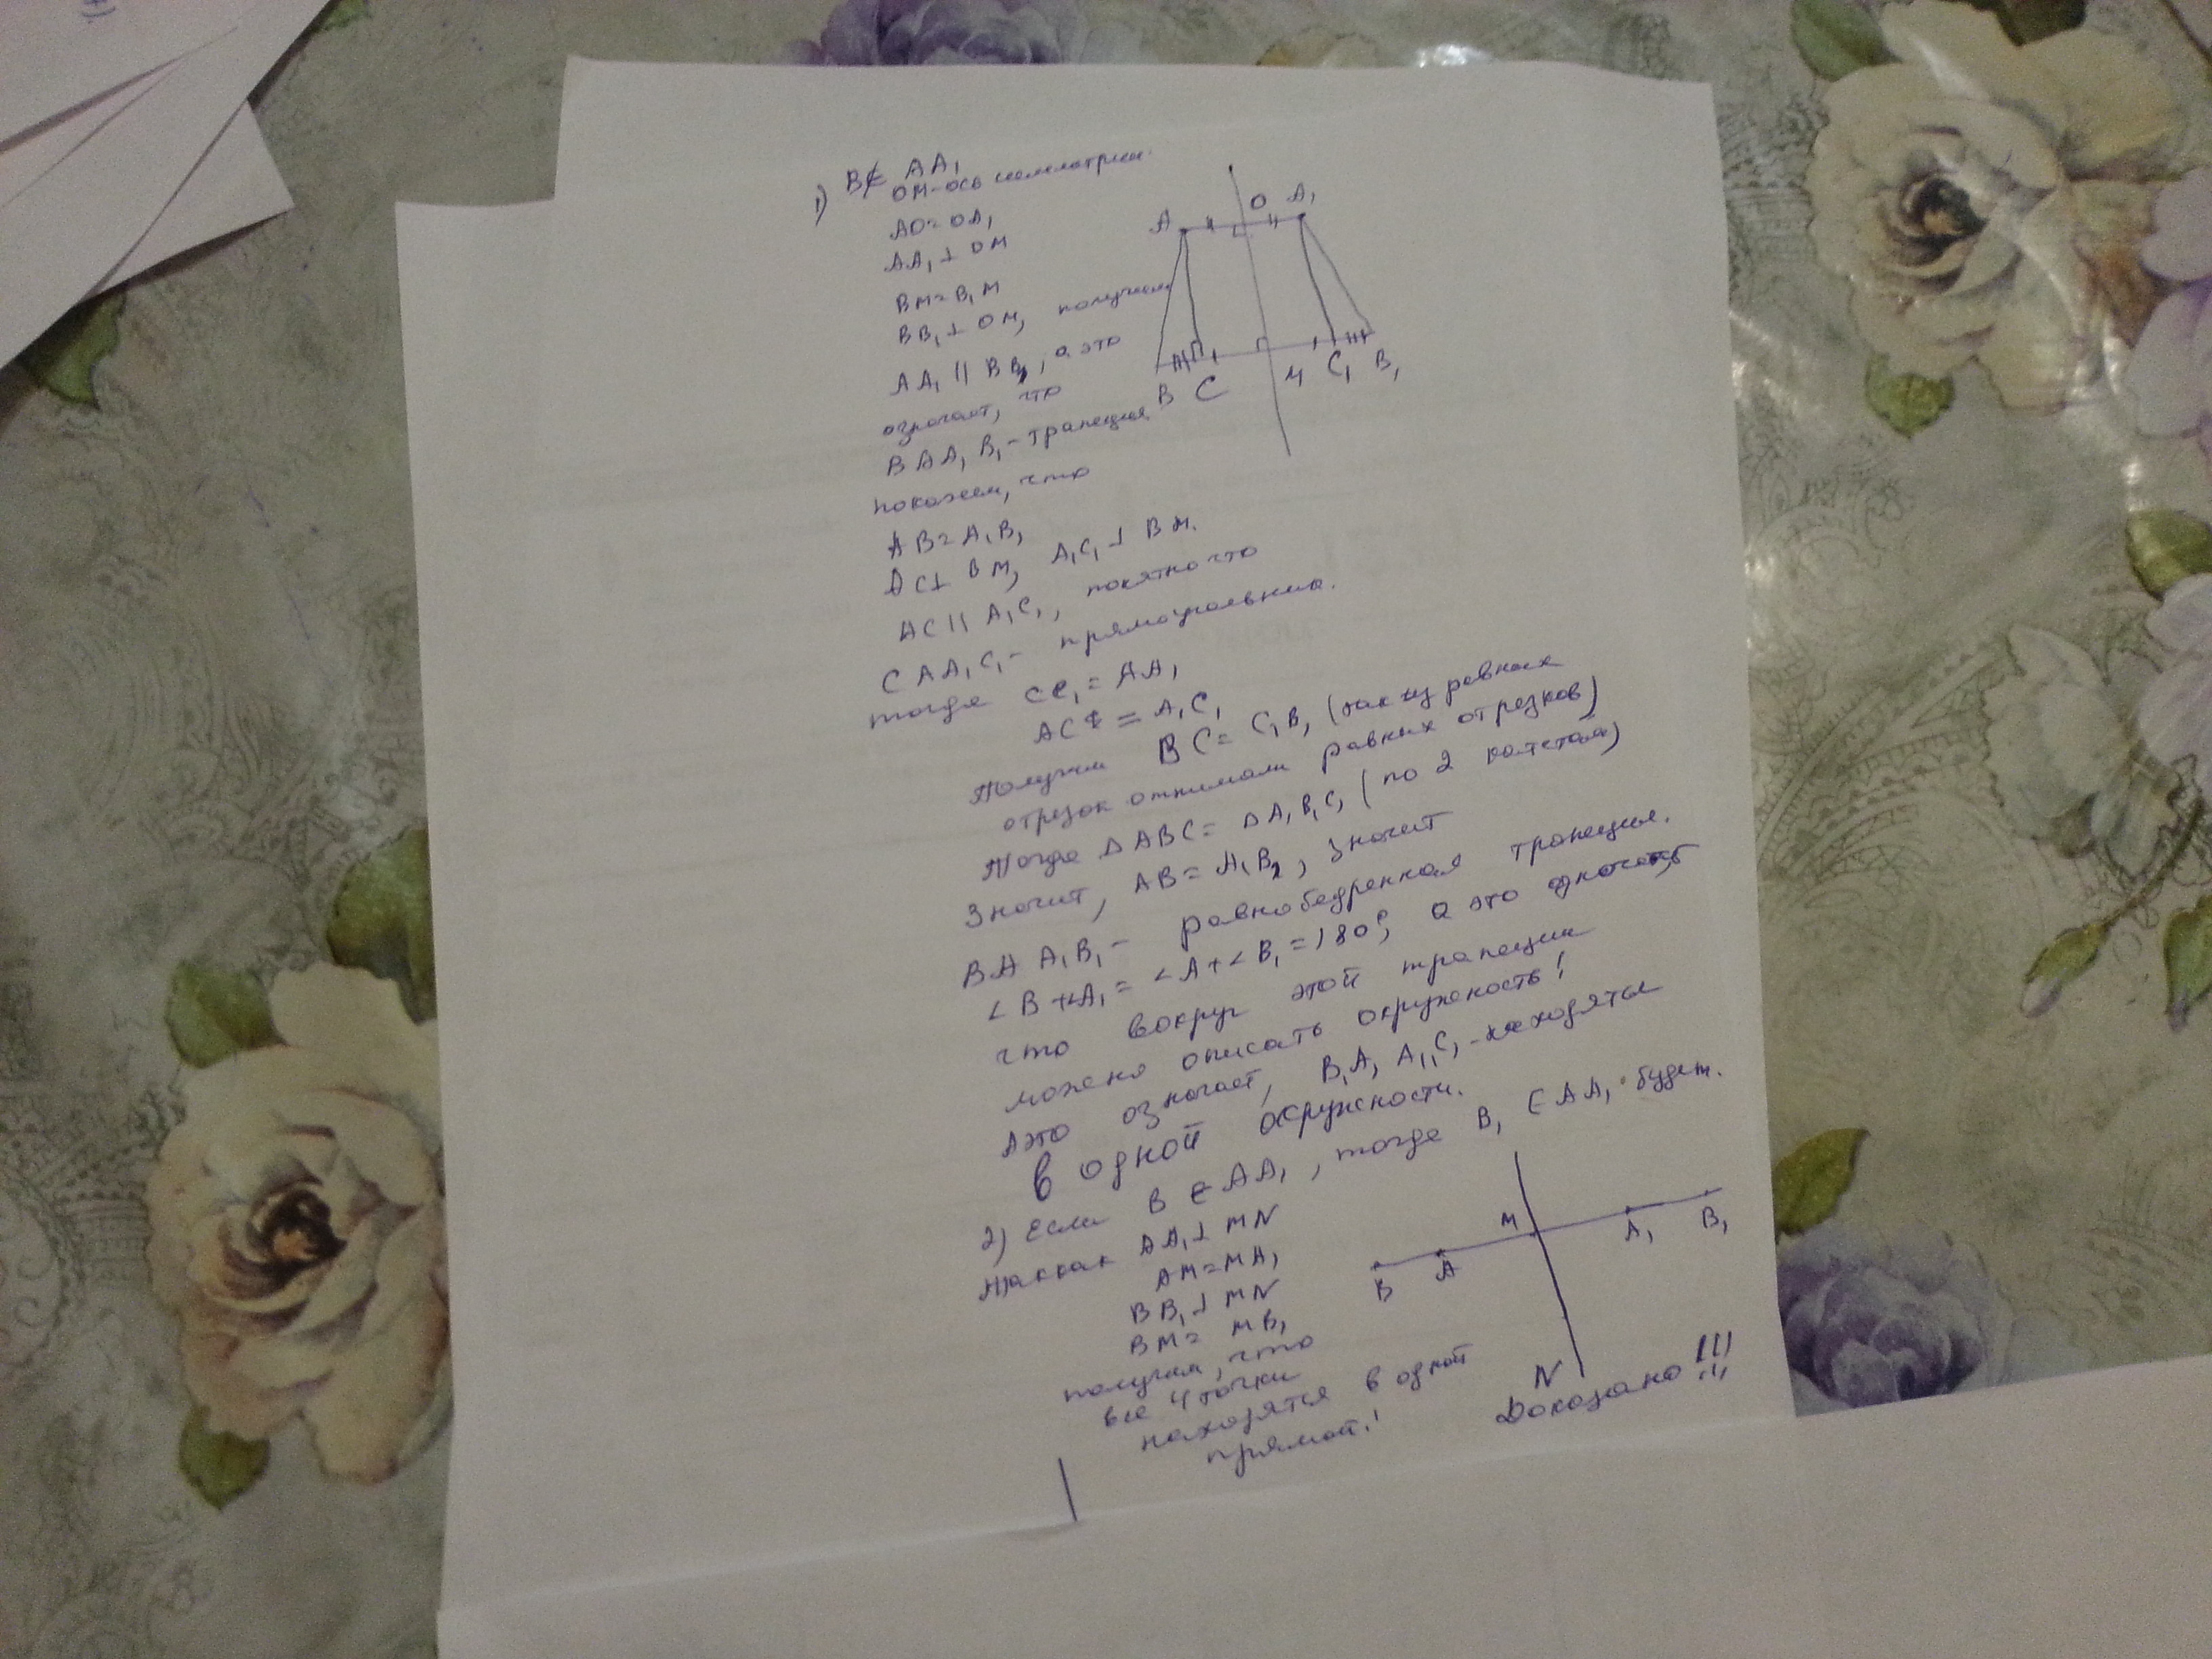 1) B∉ AA₁
OM-ось симметрии.
AO=OA₁
AA₁⊥OM
BM=B₁M
BB₁⊥OM, получим
AA₁ || BB₁, а это
означает, что
BAA₁B₁-трапеция
покажем, что
AB=A₁B₁
AC⊥BM, A₁C₁⊥BM.
AC || A₁C₁, понятно что
CAA₁C₁- прямоугольник.
тогда CC₁=AA₁
AC = A₁C₁
Получим BC=C₁B₁ (так из равных
отрезок отнимали равных отрезков)
Тогда △ABC=△A₁B₁C₁ (по 2 катетам)
Значит, AB=A₁B₁, значит
BAA₁B₁- равнобедренная трапеция.
∠B+∠A₁=∠A+∠B₁=180°, а это означает
что вокруг этой трапеции
можно описать окружность!
А это означает, B,A, A₁,C₁-находяться
в одной окружности.
2) Если B ∈ AA₁, тогда B₁ ∈ AA₁ будет.
Так как AA₁⊥MN
AM=MA₁
BB₁⊥MN
BM= MB₁
получим, что
все 4 точки
находятся в одной
прямой!
Доказано !!!
A O A₁
B C M C₁ B₁
B A M A₁ B₁
N